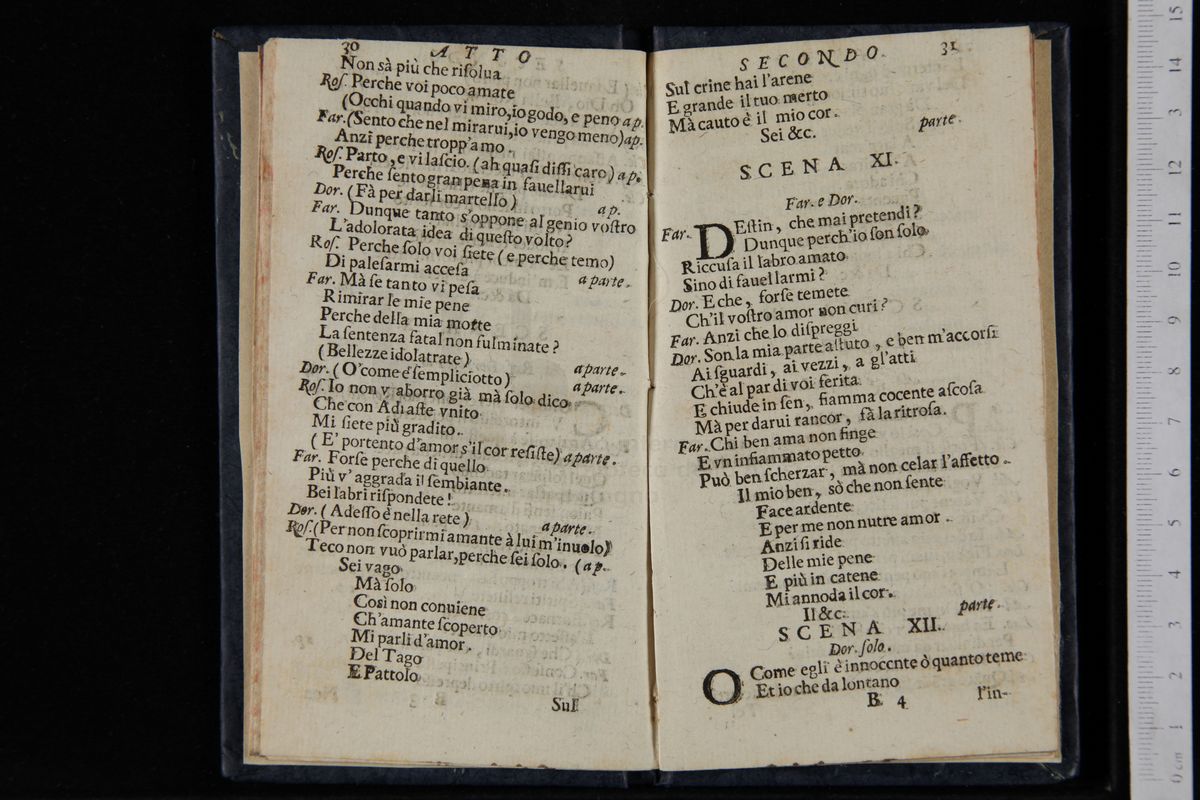 30 ATTO
Non sà più che riſolua
Roſ. Perche voi poco amate
(Occhi quando vi miro, io godo, e peno ap.
Far. (Sento che nel mirarui, io vengo meno) ap.
Anzi perche tropp'amo.
Roſ. Parto, e vi laſcio. (ah quaſi diſſi caro) ap.
Perche ſento gran pena in fauellarui
Dor. (Fà per darli martelſo) ap.
Far. Dunque tanto s'oppone al genio voſtro
L'adolorata idea di queſto volto?
Roſ. Perche ſolo voi ſiete (e perche temo)
Di paleſarmi acceſa a parte.
Far. Mà ſe tanto vi peſa
Rimirar le mie pene
Perche della mia morte
La ſentenza fatal non fulminate?
(Bellezze idolatrate) aparte.
Dor. (O'come è ſempliciotto) aparte.
Roſ. Io non v aborro già mà ſolo dico
Che con Adraſte vnito
Mi ſiete più gradito.
(E' portento d'amor s'il cor reſiſte) aparte.
Far. Forſe perche di quello
Più v' aggrada il ſembiante.
Bei labri riſpondete!
Dor. (Adeſſo è nella rete) aparte.
Roſ. (Per non ſcoprirmi amante à lui m'inuolo)
Teco non vuò parlar, perche ſei ſolo. (ap.
Sei vago
Mà ſolo
Così non conuiene
Ch'amante ſcoperto
Mi parli d'amor.
Del Tago
E Pattolo
Sul
SECONDO. 31
Sul crine hai l'arene
E grande il tuo merto
Mà cauto è il mio cor.
Sei &c. parte.
SCENA XI.
Far. e Dor.
Far. DEſtin, che mai pretendi?
Dunque perch'io ſon ſolo
Riccuſa il labro amato
Sino di fauellarmi?
Dor. E che, forſe temete
Ch'il voſtro amor non curi?
Far. Anzi che lo diſpreggi
Dor. Son la mia parte aſtuto, e ben m'accorſi
Ai ſguardi, ai vezzi, a gl'atti
Ch'è al par di voi ferita
E chiude in ſen, fiamma cocente aſcoſa
Mà per darui rancor, fà la ritroſa.
Far. Chi ben ama non finge
E vn infiammato petto
Può ben ſcherzar, mà non celar l'affetto.
Il mio ben, sò che non ſente
Face ardente
E per me non nutre amor.
Anzi ſi ride
Delle mie pene
E più in catene
Mi annoda il cor.
Il &c. parte.
SCENA XII.
Dor. ſolo.
O Come egli è innocente ò quanto teme
Et io che da lontano
B 4 l'in-